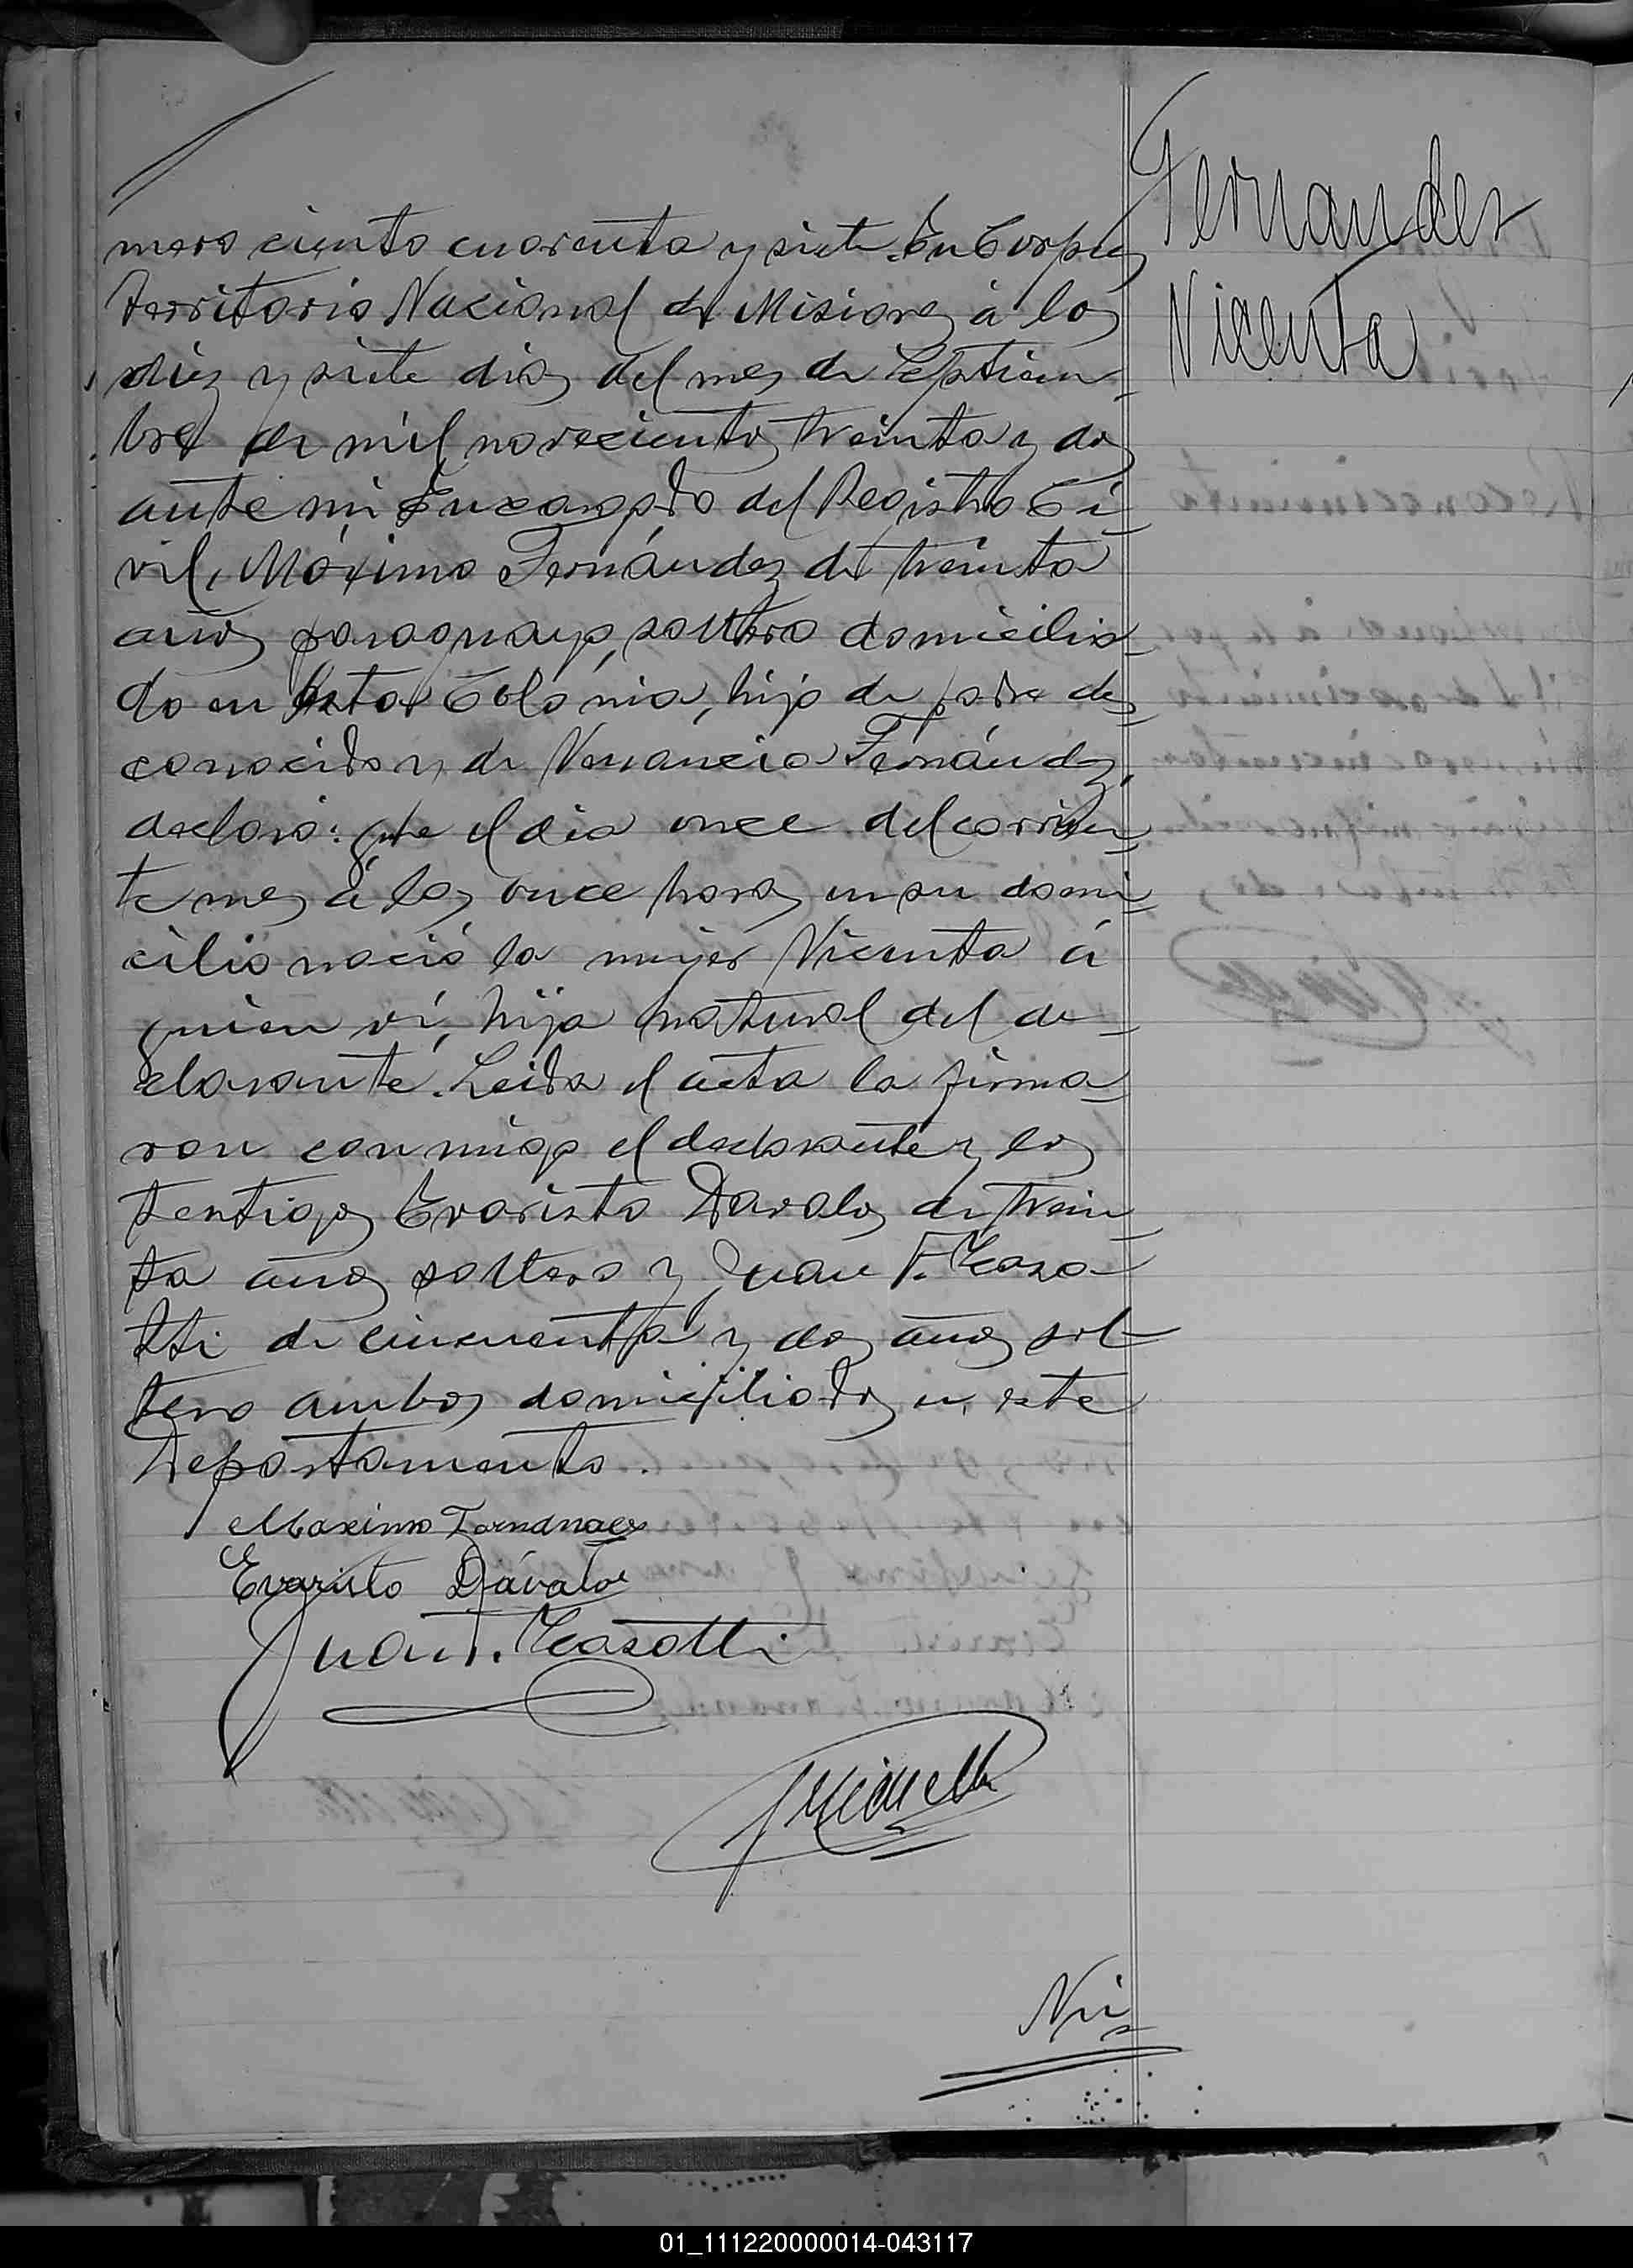 Fernandez
Vicenta
mero ciento cuarenta y siete. En Corpus
Territorio Nacional de Misiones á los
diez y siete dias del mes de Septiem-
bre de mil novecientos treinta y dos
ante mi Encargado del Registro Ci-
vil, Máximo Fernández de treinta
años paraguayo, soltero domicilia-
do en esta Colonia, hijo de padre des-
conocido y de Venancia Fernández,
declaró: que el dia once del corrien-
te mes á las once horas en su domi-
cilio nació la mujer Vicenta á
quien ví, hija natural del de-
clarante. Leida el acta la firma-
ron conmigo el declarante y los
testigos Evaristo Davalos de trein-
ta años soltero y Juan F. Casa-
tti de cincuenta y dos años sol-
tero ambos domiciliados en este
Departamento.
Maximo Fernandez
Evaristo Dávalos
Juan F. Casotti
Nú-
01_111220000014-043117